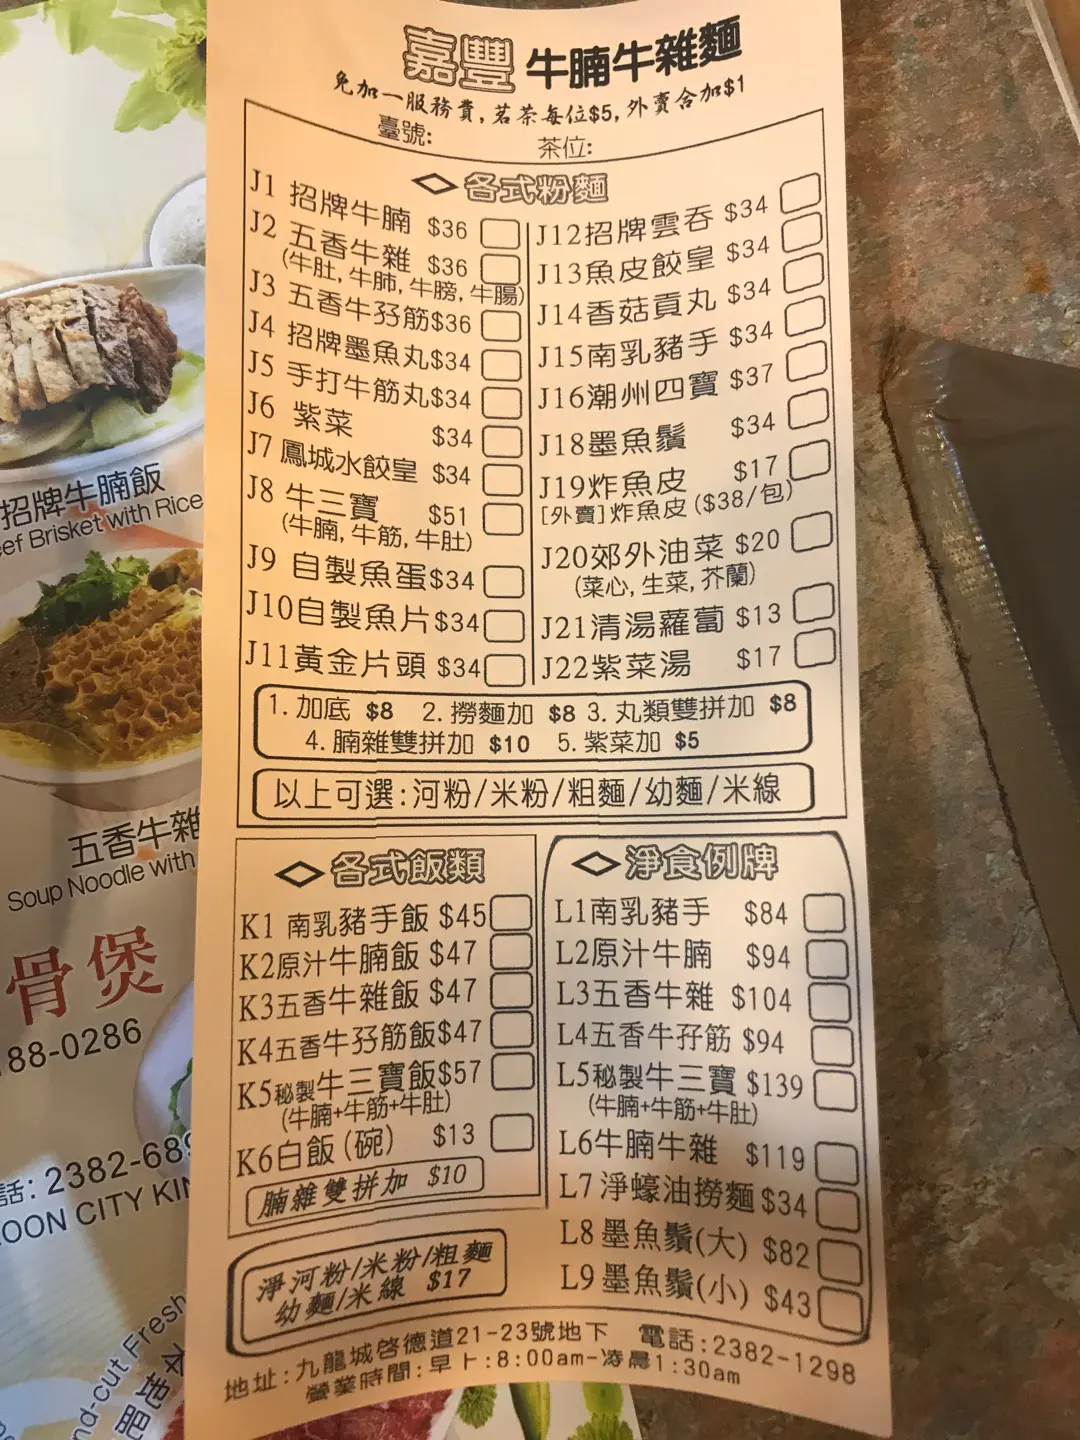 嘉豐 牛腩牛雜麵
免加一服務費, 茗茶每位$5, 外賣含加$1
臺號:
茶位:
各式粉麵
J1 招牌牛腩 $36
J2 五香牛雜 $36
(牛肚, 牛肺, 牛膀, 牛腸)
J3 五香牛孖筋$36
J4 招牌墨魚丸$34
J5 手打牛筋丸$34
J6 紫菜 $34
J7 鳳城水餃皇 $34
J8 牛三寶 $51
(牛腩, 牛筋, 牛肚)
J9 自製魚蛋$34
J10自製魚片$34
J11黃金片頭 $34
J12招牌雲吞 $34
J13魚皮餃皇 $34
J14香菇貢丸 $34
J15南乳豬手 $34
J16潮州四寶 $37
J18墨魚鬚 $34
J19炸魚皮 $17
[外賣]炸魚皮 ($38/包)
J20郊外油菜 $20
(菜心, 生菜, 芥蘭)
J21清湯蘿蔔 $13
J22紫菜湯 $17
1. 加底 $8 2. 撈麵加 $8 3. 丸類雙拼加 $8
4. 腩雜雙拼加 $10 5. 紫菜加 $5
以上可選:河粉/米粉/粗麵/幼麵/米線
各式飯類
K1 南乳豬手飯 $45
K2原汁牛腩飯 $47
K3五香牛雜飯 $47
K4五香牛孖筋飯$47
K5秘製牛三寶飯$57
(牛腩+牛筋+牛肚)
K6白飯(碗) $13
腩雜雙拼加 $10
淨河粉/米粉/粗麵
幼麵/米線 $17
淨食例牌
L1南乳豬手 $84
L2原汁牛腩 $94
L3五香牛雜 $104
L4五香牛孖筋 $94
L5秘製牛三寶 $139
(牛腩+牛筋+牛肚)
L6牛腩牛雜 $119
L7淨蠔油撈麵$34
L8墨魚鬚(大) $82
L9墨魚鬚(小) $43
地址:九龍城啓德道21-23號地下 電話:2382-1298
營業時間:早上:8:00am-凌晨1:30am
招牌牛腩飯
ef Brisket with Rice
五香牛雜
Soup Noodle with
骨煲
88-0286
話: 2382-689
OON CITY KIN
nd-cut Fresh